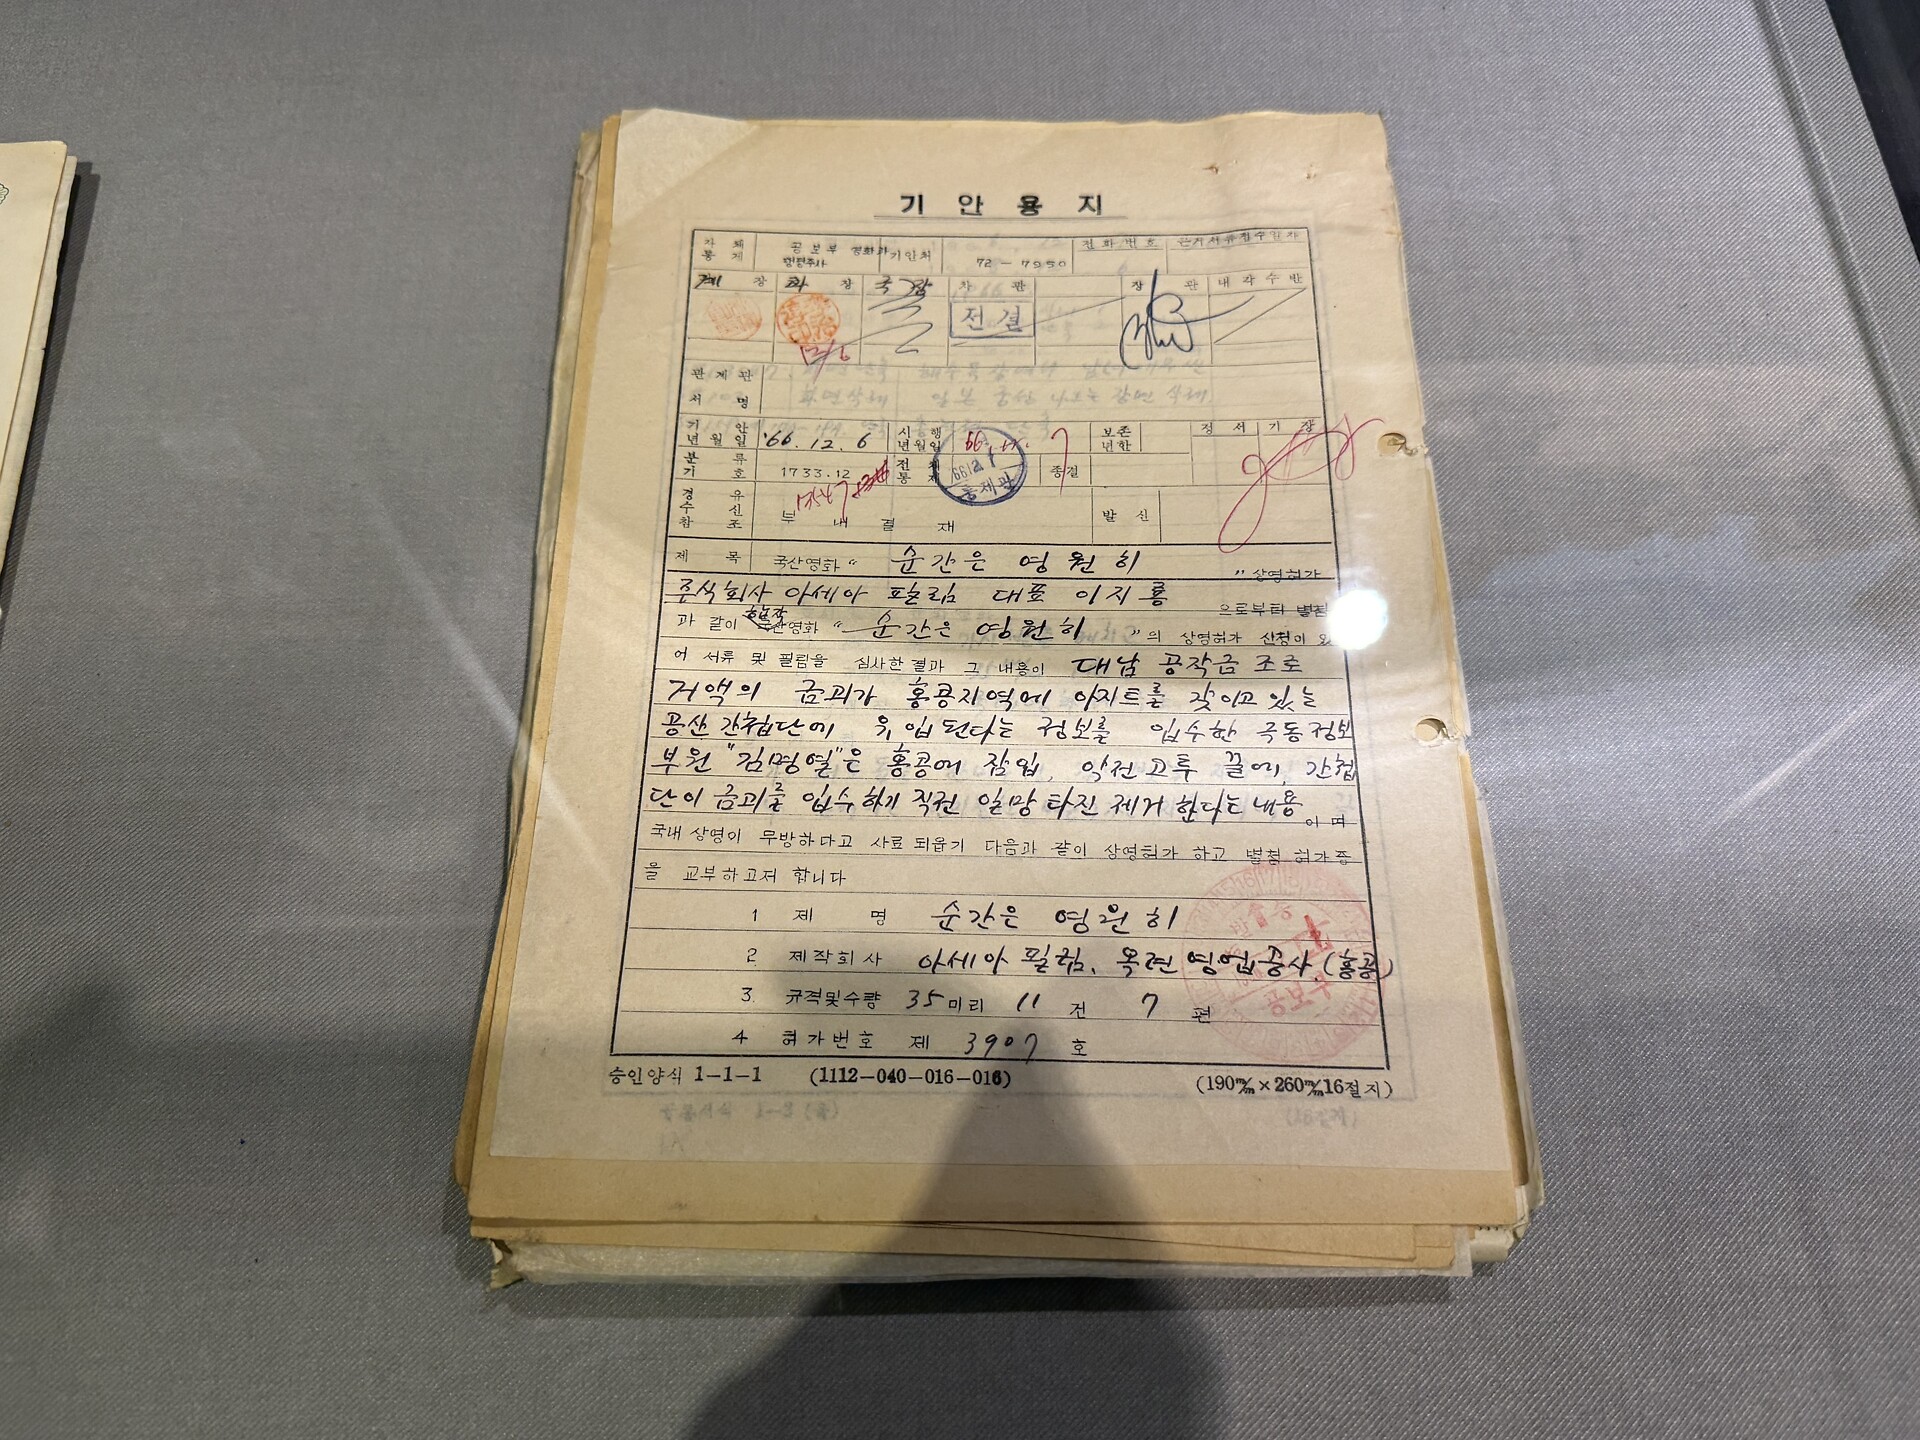 기안용지
자체 통제 공보부 영화과 기안처 72-7950 전화번호 근거서류접수일자
행정주사
계장 과장 국장 차관 장관 내각수반
전결
12/6
관계관 서명
기안 년월일 '66. 12. 6 시행 년월일 보존 년한 정서 기장
분류 기호 1733.12 전체 통제 종결
66 12. 7
통제관
경유 수신 참조 부내결재 발신
제목 국산영화 " 순간은 영원히 " 상영허가
주식회사 아세아 필림 대표 이지룡 으로부터 별첨
과 같이 합작 영화 " 순간은 영원히 " 의 상영허가 신청이 있
어 서류 및 필림을 심사한 결과 그 내용이 대남 공작금 조로
거액의 금괴가 홍콩지역에 아지트를 갖이고 있는
공산 간첩단에 유입된다는 정보를 입수한 극동정보
부원 "김명열"은 홍콩에 잠입, 악전고투 끝에, 간첩
단이 금괴를 입수하기 직전 일망타진 제거 한다는 내용 이며
국내 상영이 무방하다고 사료 되옵기 다음과 같이 상영허가 하고 별첨 허가증
을 교부하고저 합니다
1 제 명 순간은 영원히
2 제작회사 아세아 필림, 옥련영업공사 (홍콩)
3 규격및수량 35 미리 11 권 7 편
4 허가번호 제 3907 호
공보부
승인양식 1-1-1 (1112-040-016-016) (190m/m×260m/m16절지)